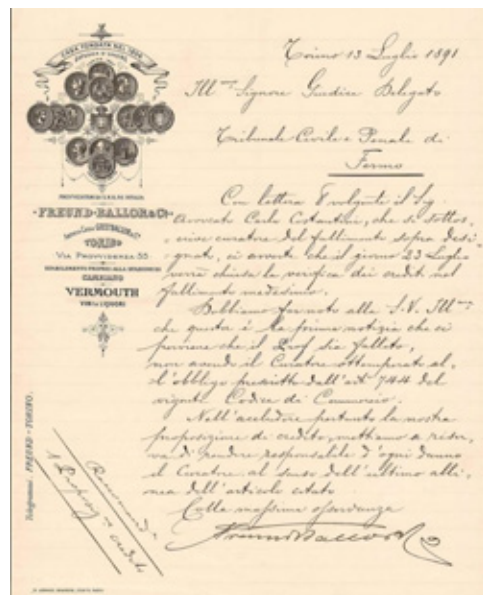 CASA FONDATA NEL 1856
-FREUND-BALLOR & Co-
TORINO
VIA PROVVIDENZA 55
CAMBIANO
VERMOUTH
VINI & LIQUORI
Telegrammi: FREUND - TORINO.
Torino 13 Luglio 1891
Ill.mo Signore Giudice Delegato
Tribunale Civile e Penale di
Fermo
Con lettera 8 volgente il Sig.
Avvocato Carlo Costantini, che si sottos,
crive curatore del fallimento sopra desi,
gnato, ci avverte che il giorno 23 Luglio
verrà chiusa la verifica dei crediti nel
fallimento medesimo.
Dobbiamo far noto alla S.V. Ill.ma
che questa è la prima notizia che ci
perviene che il Prof sia fallito,
non avendo il Curatore ottemperato al,
l'obbligo prescritto dall'art. 744 del
vigente Codice di Commercio.
Nell'accludere pertanto la nostra
proposizione di credito, mettiamo a riser,
va di rendere responsabile d'ogni danno
il Curatore al senso dell'ultimo alli,
nea dell'articolo citato
Colla massima osservanza
Freund Ballor & Co
Raccomandata
1 Proposizne credito